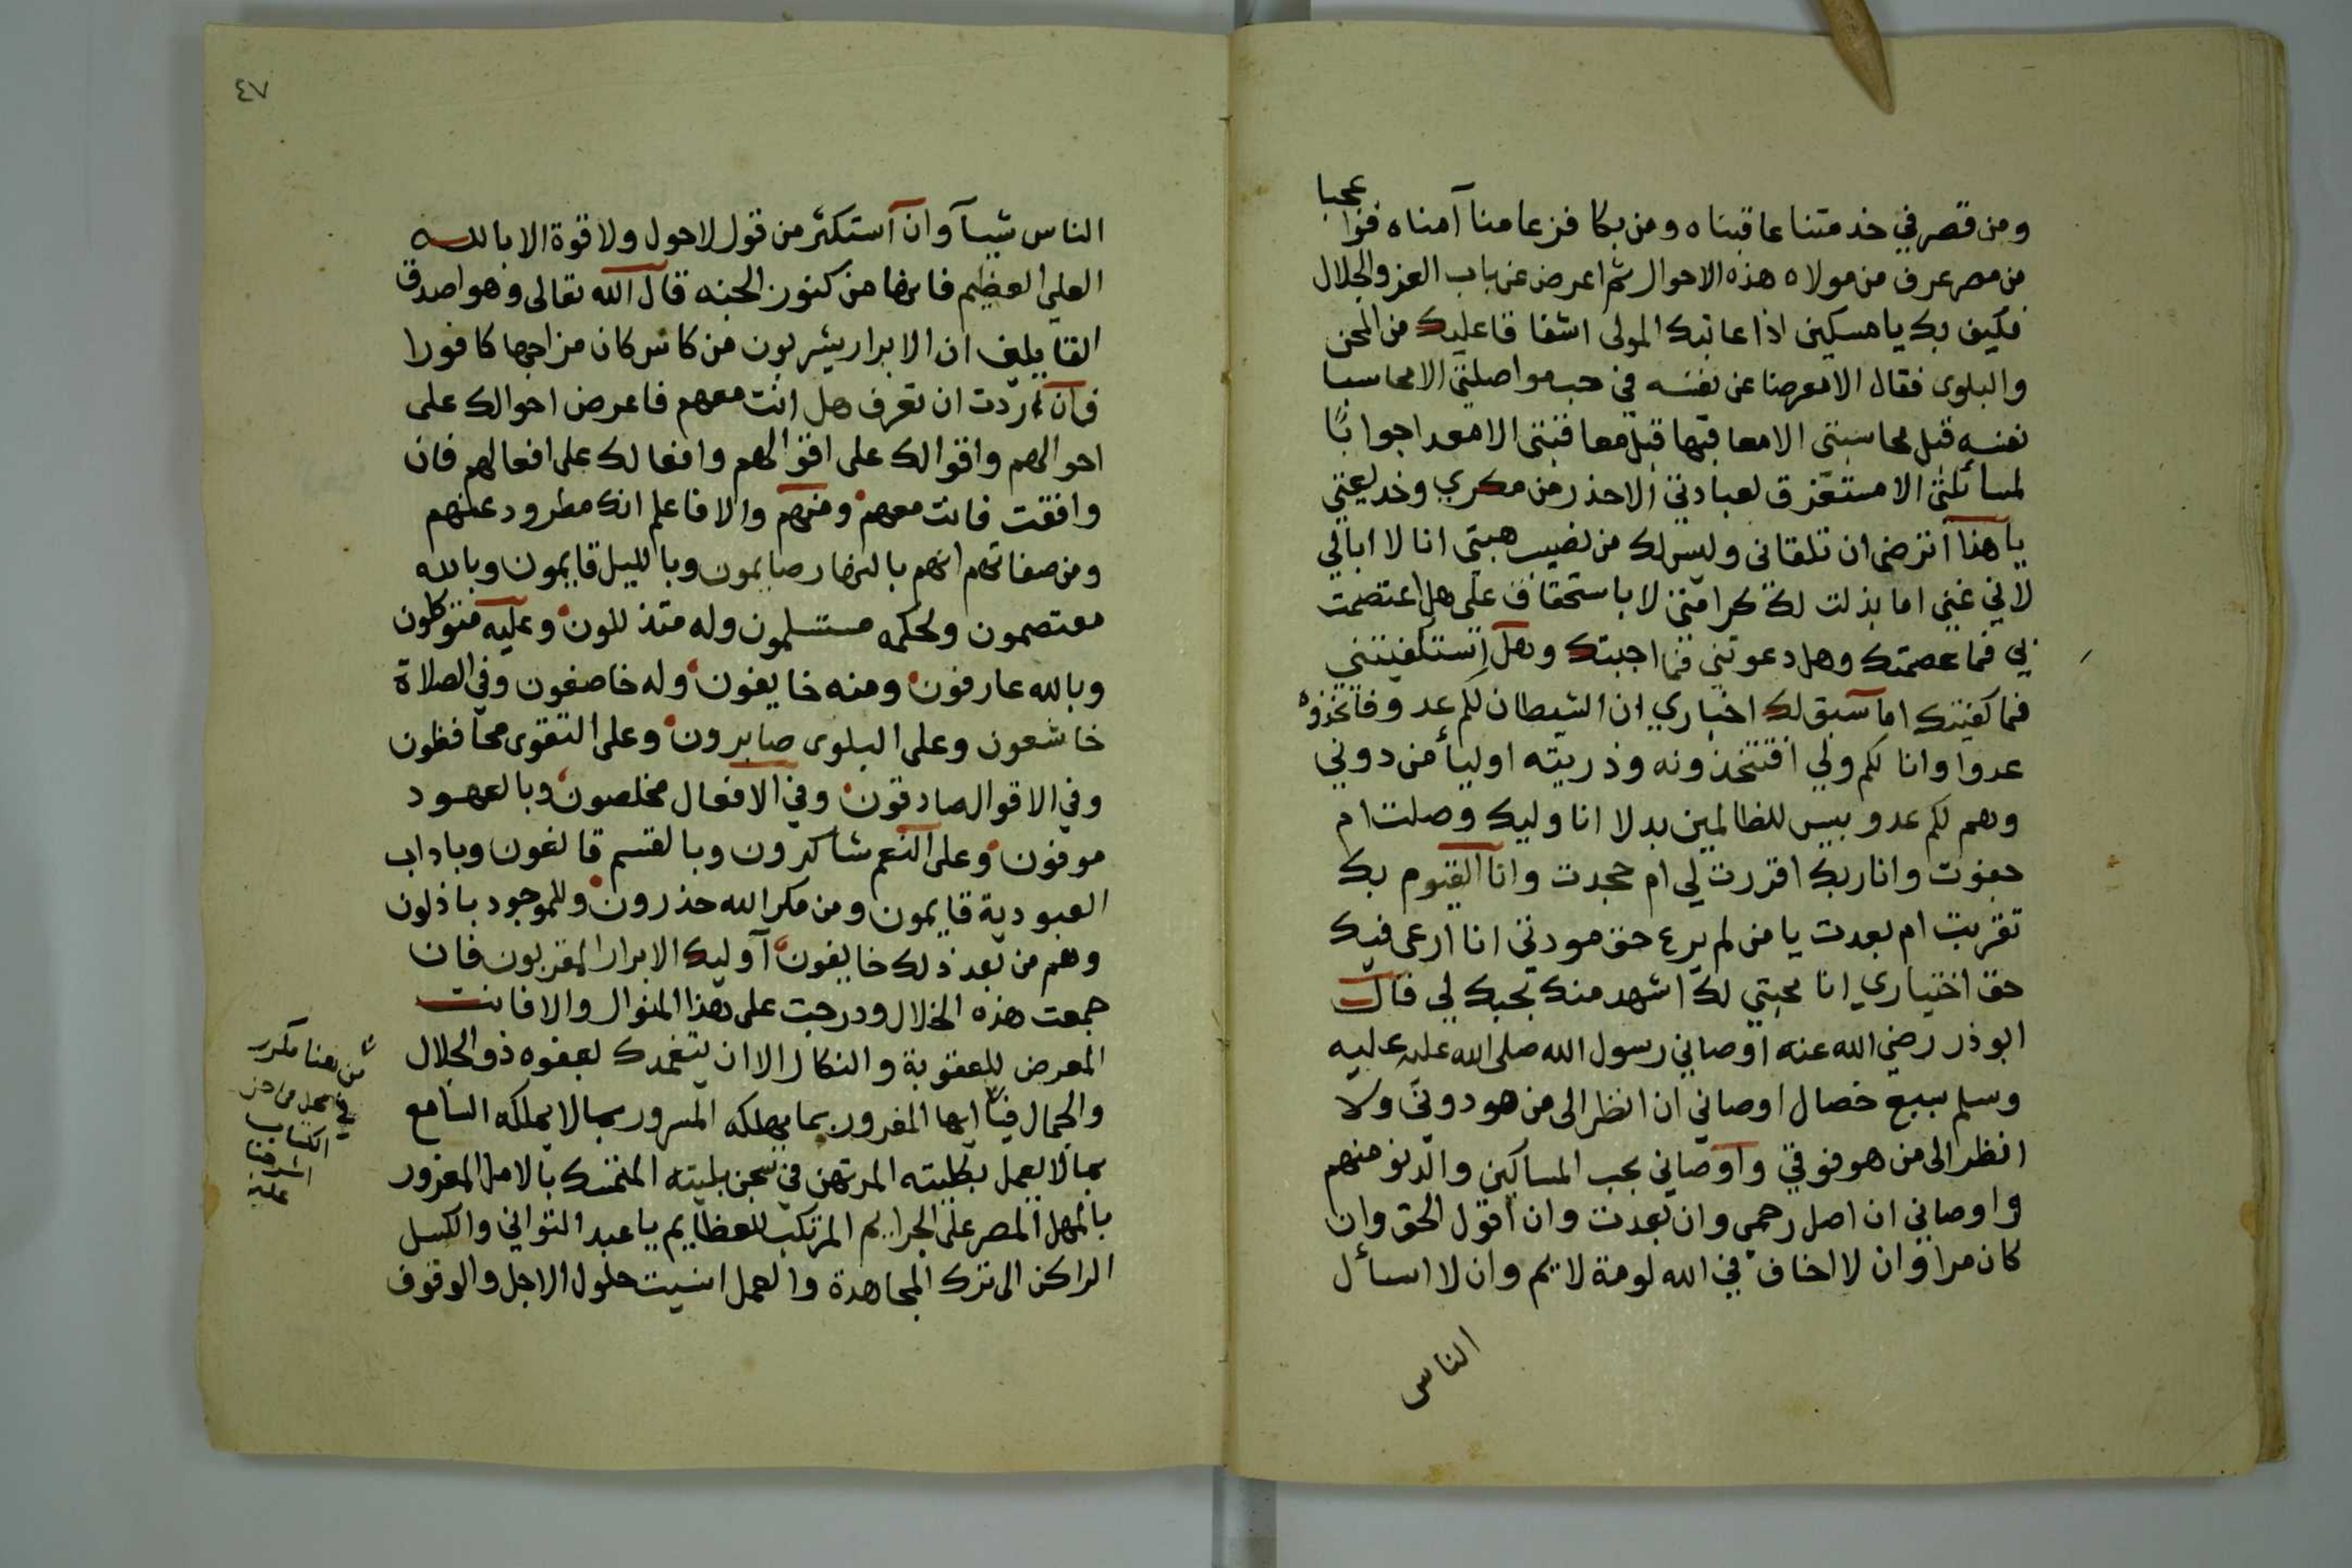 ومن قصر في خدمتنا عاقبناه ومن بكا فزعا منا آمناه فوا عجبا
من مصر عرف من مولاه هذه الاحوال ثم اعرض عن باب العز والجلال
فكيف بك يا مسكين اذا عاتبك المولى اشفاقا عليك من المحن
والبلوى فقال الا معرضا عن نفسه في حب مواصلتي الا محاسبا
نفسه قبل محاسبتي الا معاقبها قبل معاقبتي الا معدا جوابًا
لمسائلتي الا مستغرق لعبادتي الا حذر من مكري وخديعتي
يا هذا اترضى ان تلقاني وليس لك من نصيب هبتي انا لا ابالي
لاني غني اما بذلت لك كرامتي لا باستحقاق علي هل اعتصمت
بي فما عصمتك وهل دعوتني فما اجبتك وهل استكفيتني
فما كفيتك اما سبق لك اخباري ان الشيطان لكم عدو فاتخذوه
عدوا وانا لكم ولي افتتخذونه وذريته اوليأ من دوني
وهم لكم عدو بيس للظالمين بدلا انا وليك وصلت ام
جفوت وانا ربك اقررت لي ام جحدت وانا القيوم بك
تقربت ام بعدت يا من لم يرع حق مودتي انا ارعى فيك
حق اختياري انا محبتي لك اشهد منك بحبك لي قال
ابو ذر رضي الله عنه اوصاني رسول الله صلى الله عليه عليه
وسلم بسبع خصال اوصاني ان انظر الى من هو دوني ولا
انظر الى من هو فوقي واوصاني بحب المساكين والدنو منهم
واوصاني ان اصل رحمي وان بعدت وان اقول الحق وان
كان مرا وان لا اخاف في الله لومة لايم وان لا اسأل
الناس
٤٧
الناس شيأ وان استكثر من قول لا حول ولا قوة الا بالله
العلي العظيم فانها من كنوز الجنه قال الله تعالى وهو اصدق
القايلين ان الابرار يشربون من كاس كان مزاجها كافورا
فان اردت ان تعرف هل انت معهم فاعرض احوالك على
احوالهم واقوالك على اقوالهم وافعالك على افعالهم فان
وافقت فانت معهم ومنهم والا فاعلم انك مطرود عنهم
ومن صفاتهم انهم بالنهار صايمون وبالليل قايمون وبالله
معتصمون ولحكمه مستسلمون وله متذللون وعليه متوكلون
وبالله عارفون ومنه خايفون وله خاضعون وفي الصلاة
خاشعون وعلى البلوى صابرون وعلى التقوى محافظون
وفي الاقوال صادقون وفي الافعال مخلصون وبالعهود
موفون وعلى النعم شاكرون وبالقسم قانعون وباداب
العبودية قايمون ومن مكر الله حذرون وللموجود باذلون
وهم من بعد ذلك خايفون اوليك الابرار المقربون فان
جمعت هذه الخلال ودرجت على هذا المنوال والا فانت
المعرض للعقوبة والنكال الا ان يتغمدك بعفوه ذو الجلال
والجمال فيا ايها المغرور بما يهلكه المسرور بما لا يملكه السامع
بما لا يعمل بكليته المرتهن في سجن بليته المتمسك بالامل المغرور
بالمهل المصر على الجرايم المرتكب للعظايم يا عبد التواني والكسل
الراكن الى ترك المجاهدة والعمل انسيت حلول الاجل والوقوف
من هنا مكرر
في محل من
الكتاب
اشرفنا
عليه